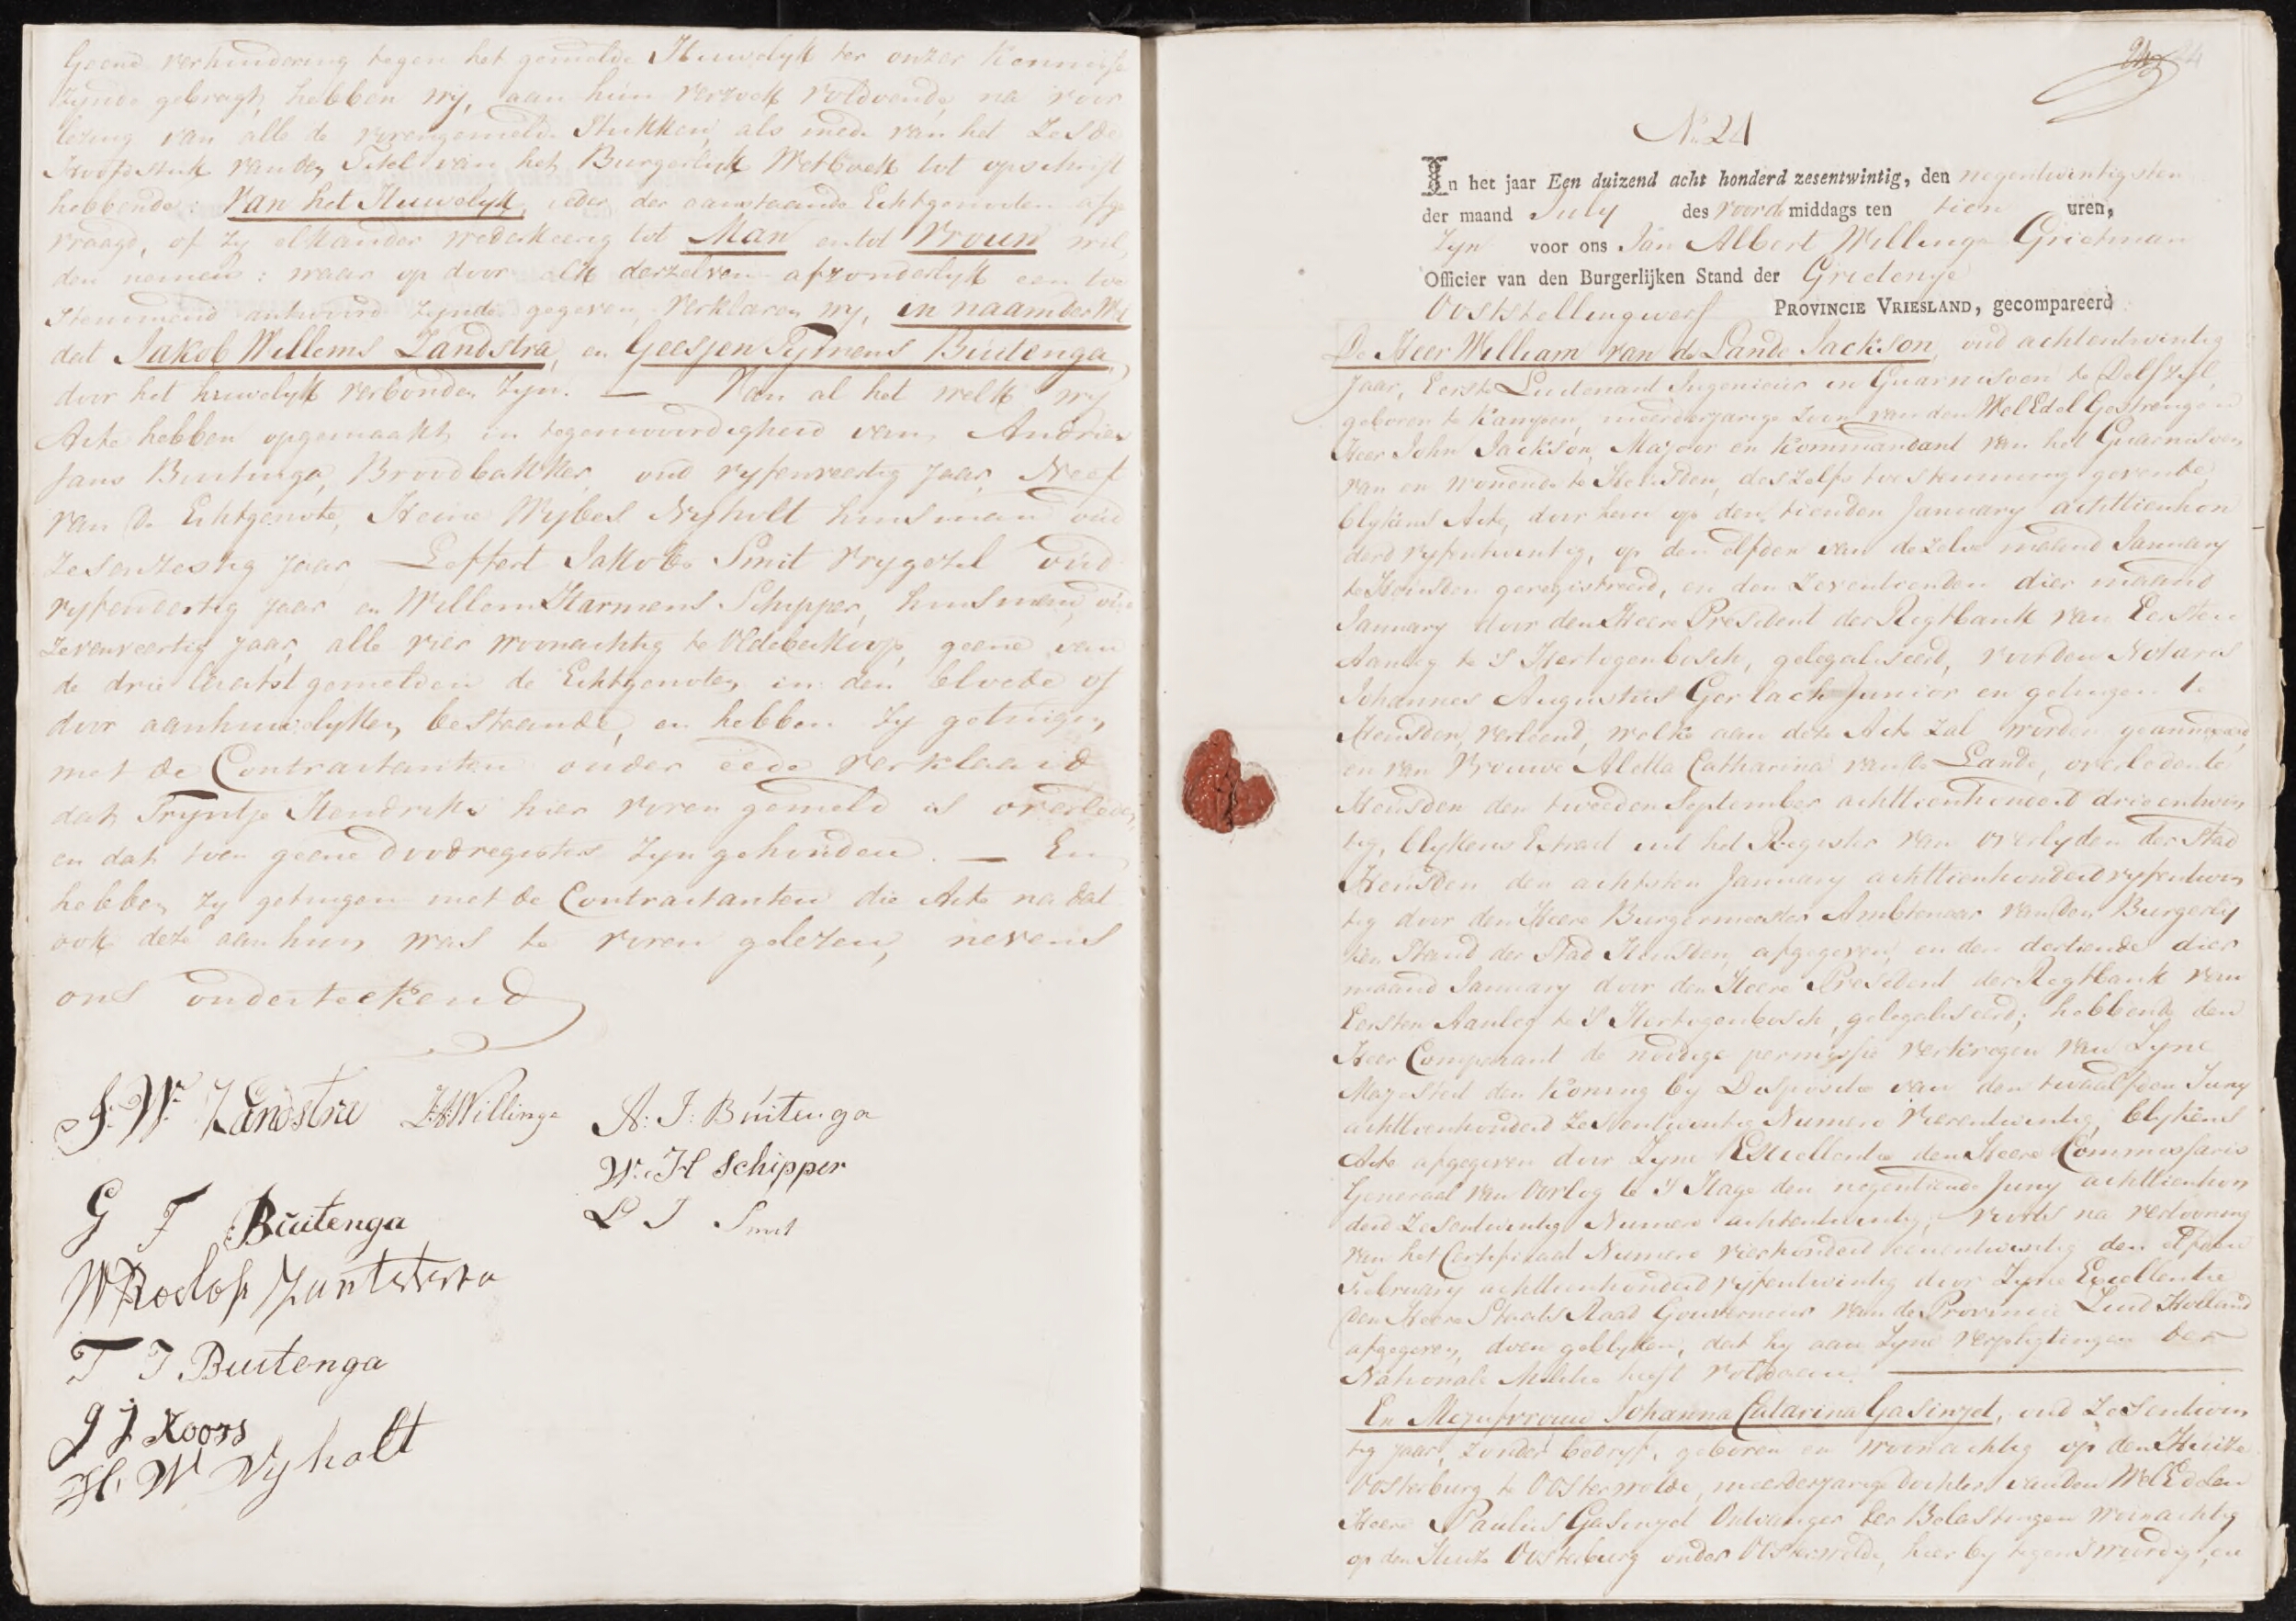 Geene verhindering tegen het gemelde Huwelyk ter onzer Kennisse
zynde gebragt, hebben wy, aan hun verzoek voldoende, na voor
lezing van alle de vorengemelde Stukken, als mede van het Zesde
Hoofdstuk van den Titel van het Burgerlyk Wetboek tot opschrift
hebbende: Van het Huwelyk, ieder der aanstaande Echtgenooten afge
vraagd, of zy elkander wederkeerig tot Man en tot Vrouw wil
den nemen: waar op door elk derzelven afzonderlyk een toe
stemmend antwoord zynde gegeven, verklaren wy, in naam der Wet
dat Jakob Willems Zandstra, en Geesjen Tymens Buitenga,
door het huwelyk verbonden zyn. — Van al het welk wy
Acte hebben opgemaakt in tegenwoordigheid van Andries
Jans Buitenga, Broodbakker, oud vyfenveertig Jaar, Neef
van de Echtgenote, Heine Wybes Nyholt huisman oud
zesenzestig Jaar Leffert Jakobs Smit vrygezel oud
vyfendertig Jaar en Willem Harmens Schipper, huisman, oud
zevenveertig Jaar, alle vier woonachtig te Oldeberkoop, geene van
de drie laatst gemelden de Echtgenoten in den bloede of
door aanhuwelyken bestaande, en hebben zy getuigen,
met de Contractanten onder eede verklaard
dat Tryntje Hendriks hier voren gemeld is overleden,
en dat toen geene doodregisters zyn gehouden. — En
hebben zy getuigen met de Contractanten die Acte na dat
ook deze aan hun was te voren gelezen, nevens
ons onderteekend
J. W. Zandstra J A Willinge A: J: Buitenga
W. H Schipper
G T Buitenga L J Smit
W Roelofs Zantstra
T J Buitenga
J J Koors
H. W Nyholt
24
No. 24
In het jaar Een duizend acht honderd zesentwintig, den negentwintigsten
der maand July des voordmiddags ten tien uren,
Zyn voor ons Jan Albert Willinge Grietman
Officier van den Burgerlijken Stand der Grietenye
Ooststellingwerf PROVINCIE VRIESLAND, gecompareerd
De Heer William van de Lande Jackson, oud achtentwintig
Jaar, Eerste Luitenant Ingenieur in Guarnisoen te Delfzyl,
geboren te Kampen, meerderjarige zoon van den Wel Edel Gestrengen
Heer John Jackson, Majoor en Kommandant van het Guarnisoen
van en wonende te Heusden, deszelfs toestemming gevende,
blykens Acte, door hem op den tienden January achttienhon
derd vyfentwintig, op den elfden van dezelve maand January
te Heusden geregistreerd, en den zeventienden dier maand
January door den Heere President der Regtbank van Eersten
Aanleg te S Hertogenbosch, gelegaliseerd, voor den Notaris
Johannes Augustus Gerlach Junior en getuigen te
Heusden, verleend, welke aan deze Acte zal worden geannexeerd,
en van Vrouwe Aletta Catharina van de Lande, overleden te
Heusden den tweeden September achttienhonderd drieentwin
tig, blykens Extract uit het Register van overlyden der Stad
Heusden den achtsten January achttienhonderdvyfentwin
tig door den Heere Burgermeester Ambtenaar van den Burgerly
ken Stand der Stad Heusden, afgegeven, en den dertiende dier
maand January door den Heere President der Regtbank van
Eersten Aanleg te S Hertogenbosch, gelegaliseerd; hebbende den
Heer Comparant de nodige permissie verkregen van Zyne
Majesteit den Koning by Dispositie van den twaalfden Juny
achttienhonderd Zesentwintig Numero Vierentwintig, blykens
Acte afgegeven door Zyne Excellentie den Heere Commissaris
Generaal van Oorlog te S Hage den negentiende Juny achttienhon
derd Zesentwintig Numero achtentwintig, voorts na vertooning
van het Certificaat Numero vierhonderd eenentwintig den elfden
February achttienhonderdvyfentwintig door Zyne Excellentie
den Heere Staats Raad Gouverneur van de Provincie Zuid Holland
afgegeven, doen gebleken, dat hy aan zyne verpligtingen ter
Nationale Militie heeft voldaan.
En Mejufvrouw Johanna Catarina Gasinjet, oud Zesentwin
tig Jaar, zonder bedryf, geboren en woonachtig op den Huize
Oosterburg te Oosterwolde, meerderjarige dochter van den Wel Edelen
Heere Paulus Gasinjet Ontvanger der Belastingen woonachtig
op den Huize Oosterburg onder Oosterwolde, hier by tegenswoordig, en